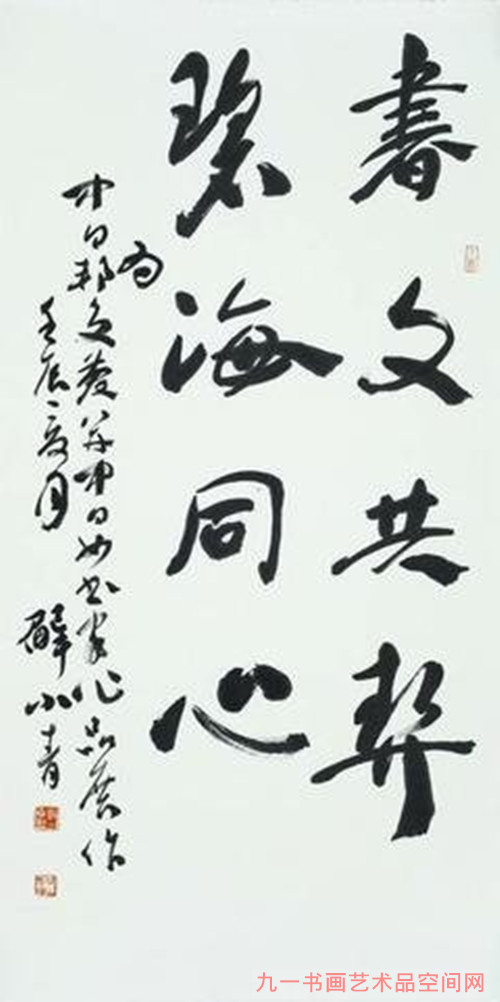 書文共契
碧海同心
为中日邦中日女书家作品展作
壬辰夏月
薛小青
九一书画艺术品空间网